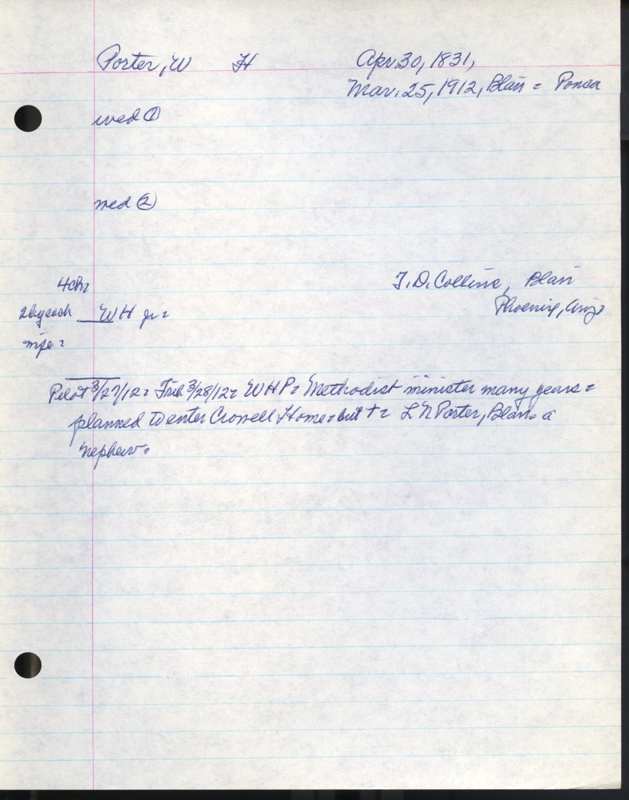 Porter, W H Apr 30, 1831,
Mar. 25, 1912, Blair = Ponca
wed ①
wed ②
4ch=
T. D. Collins, Blair
2bygeach WH jr=
Phoenix, Ariz
mpo=
Pilot 3/27/12= Trib 3/28/12= WHP= Methodist minister many years=
planned to enter Crowell Home= but += L N Porter, Blair= a
nephew.